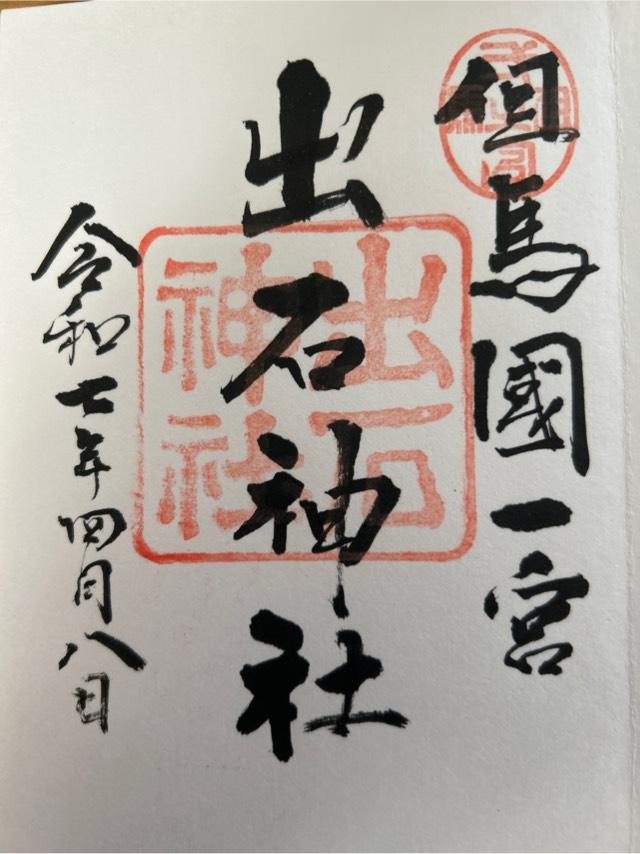 但馬國一宮
出石神社
出石神社
令和七年四月八日